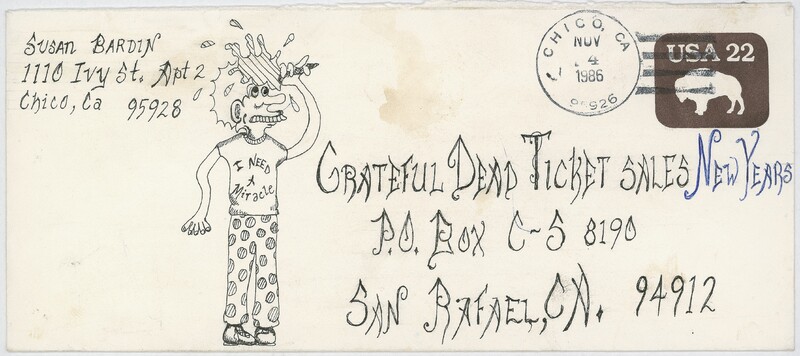 Susan Bardin
1110 Ivy St. Apt 2
Chico, Ca 95928
I NEED
A
Miracle
CHICO, CA
NOV
4
1986
95926
USA 22
GRATEFUL DEAD TICKET SALES NEW YEARS
P.O. BOX C-S 8190
SAN RAFAEL, CA. 94912